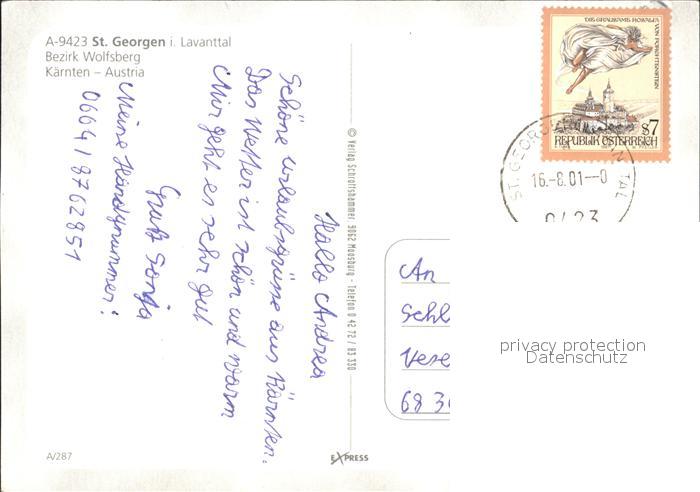 A-9423 St. Georgen i. Lavanttal
Bezirk Wolfsberg
Kärnten – Austria
Hallo Andrea
Schöne Urlaubsgrüsse aus Kärnten.
Das Wetter ist schön und warm
Mir geht es sehr gut
Gruß Sonja
Meine Handynummer:
0664/8762851
© Verlag Schroffshammer 9062 Moosburg - Telefon 0 42 72 / 83 330
DIE GRAUSAME ROSALIA VON FORCHTENSTEIN
S7
REPUBLIK ÖSTERREICH
ST. GEORGEN IN TAL
16.-8.01--0
9423
An
Schl
Vese
68 30
privacy protection
Datenschutz
A/287
EXPRESS